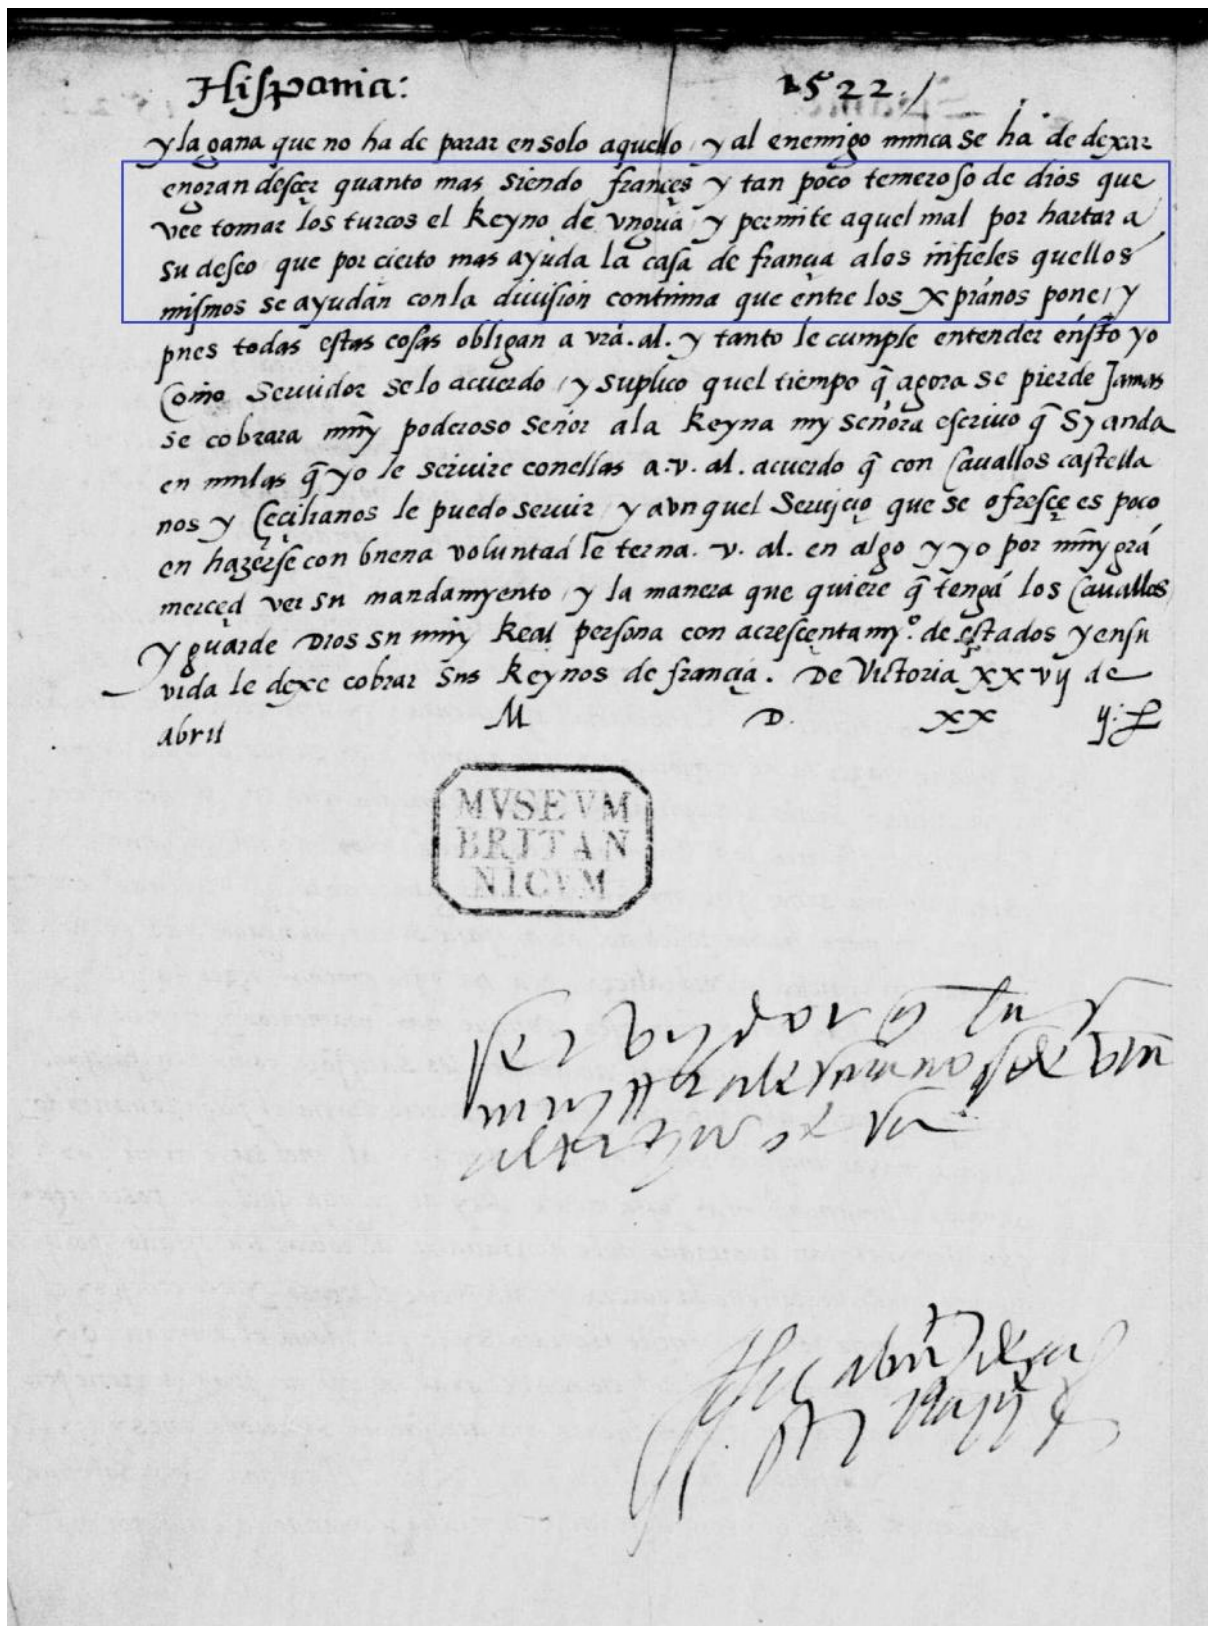 Hispania: 1522./
y la gana que no ha de parar en solo aquello / y al enemigo nunca se ha de dexar
engrandesçer quanto mas siendo françes y tan poco temeroso de dios que
vee tomar los turcos el Reyno de vngria / y permite aquel mal por hartar a
su deseo que por cierto mas ayuda la casa de françia a los infieles quellos
mismos se ayudan con la diuision continua que entre los xpianos pone / y
pues todas estas cosas obligan a vrã. al. y tanto le cumple entender enesto yo
Como Seruidor se lo acuerdo / y suplico quel tiempo q̃ agora se pierde Jamas
se cobrara muy poderoso señor a la Reyna my señora escriuo q̃ Sy anda
en mulas q̃ yo le seruire con ellas a. v. al. acuerdo q̃ con Cauallos castella
nos y Çeçilianos le puedo seruir / y avnquel Seruiçio que se ofresçe es poco
en hazerse con buena voluntad le terna. v. al. en algo y yo por muy grã
merçed ver su mandamyento / y la manera que quiere q̃ tengã los Cauallos
y guarde Dios su muy Real persona con acresçentamyº. de estados y en su
vida le dexe cobrar sus Reynos de françia. De Victoria xxvij de
abril M D. xx ij:
MVSEVM
BRITAN
NICVM
servydor q̃
muy sus manos de vrã
alteza